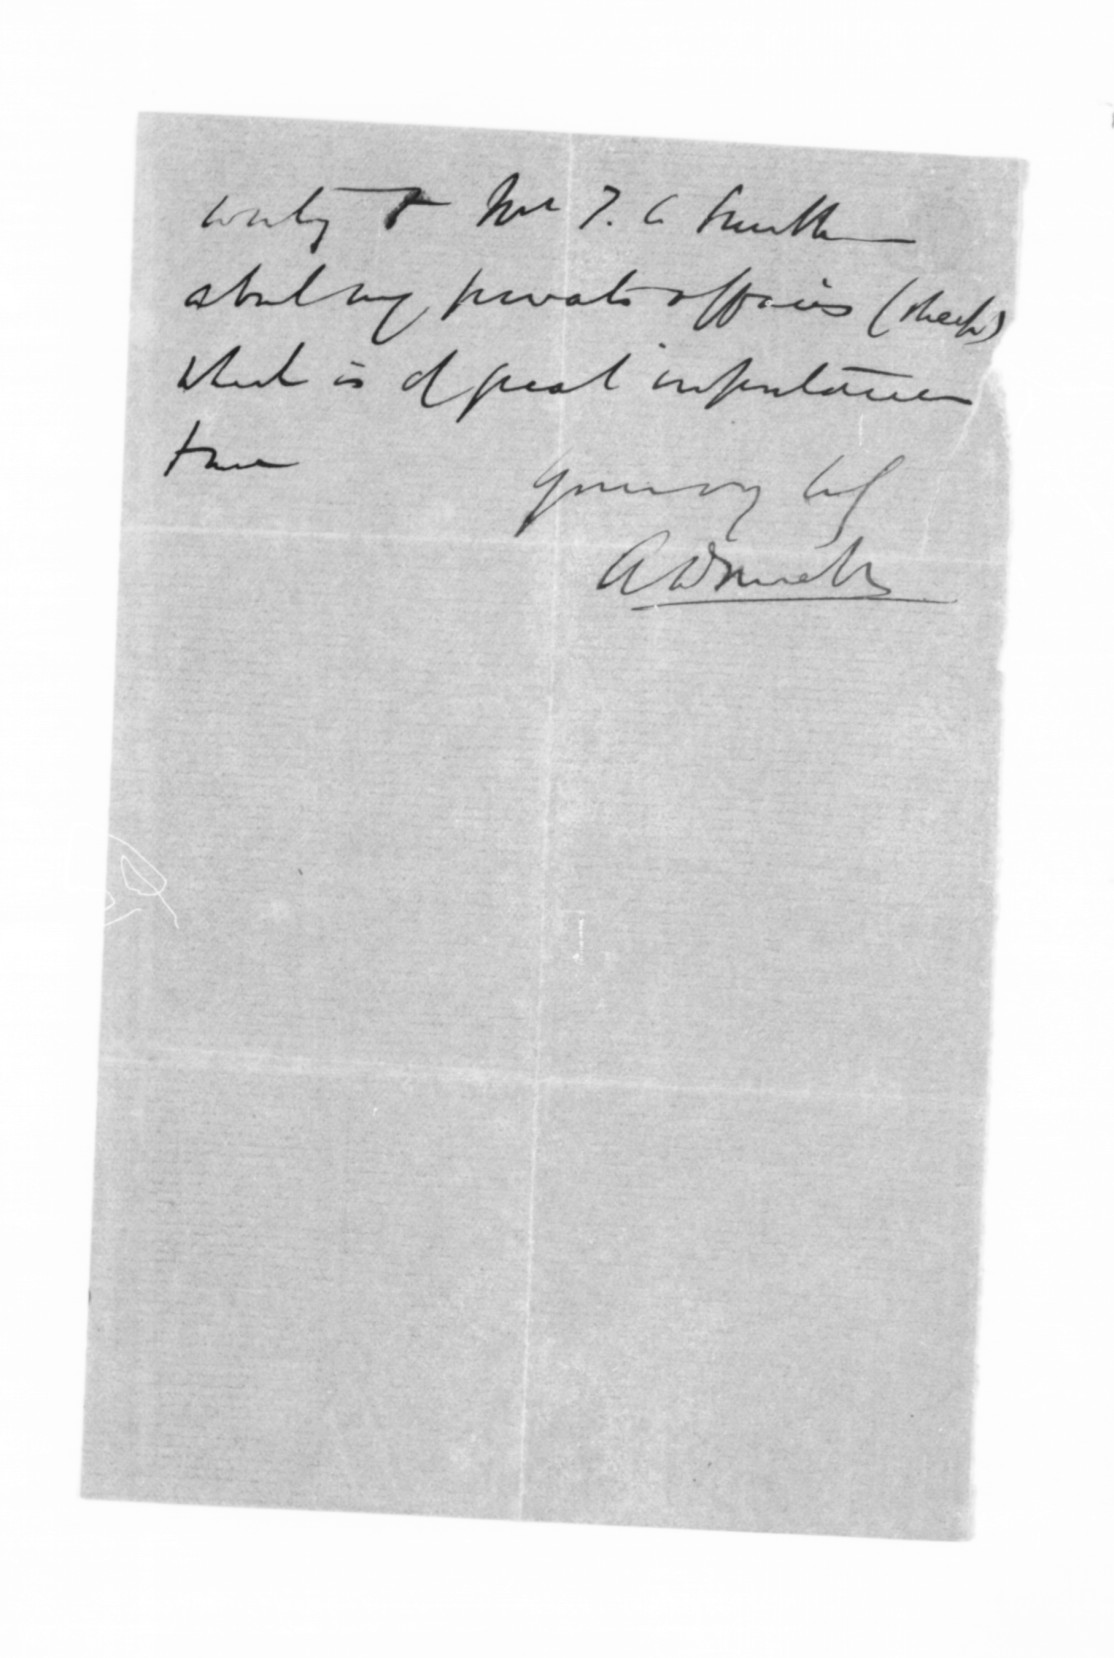 writing to Mr T. C Smith
about my private affairs (sheep)
which is of great importance
to me
Yours very truly